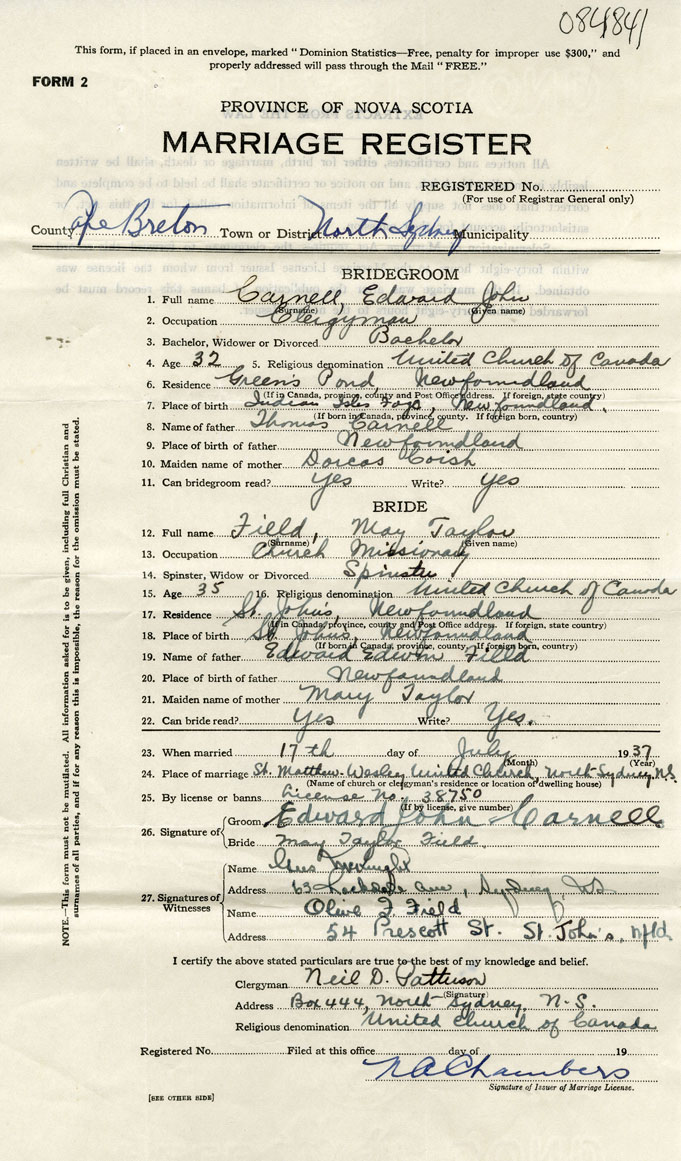 084841
This form, if placed in an envelope, marked "Dominion Statistics—Free, penalty for improper use $300," and
properly addressed will pass through the Mail "FREE."
FORM 2
PROVINCE OF NOVA SCOTIA
MARRIAGE REGISTER
REGISTERED No.
(For use of Registrar General only)
County Cape Breton Town or District North Sydney Municipality
BRIDEGROOM
1. Full name Carnell, Edward John
(Surname) (Given name)
2. Occupation Clergyman
3. Bachelor, Widower or Divorced Bachelor
4. Age 32 5. Religious denomination United Church of Canada
6. Residence Green's Pond, Newfoundland
(If in Canada, province, county and Post Office address. If foreign, state country)
7. Place of birth Indian Isles Fogo, Newfoundland.
(If born in Canada, province, county. If foreign born, country)
8. Name of father Thomas Carnell
9. Place of birth of father Newfoundland
10. Maiden name of mother Dorcas Coish
11. Can bridegroom read? yes Write? yes
BRIDE
12. Full name Field, May Taylor
(Surname) (Given name)
13. Occupation Church Missionary
14. Spinster, Widow or Divorced Spinster
15. Age 35 16. Religious denomination United Church of Canada
17. Residence St. John's, Newfoundland
(If in Canada, province, county and Post Office address. If foreign, state country)
18. Place of birth St. John's, Newfoundland
(If born in Canada, province, county. If foreign born, country)
19. Name of father Edward Edwin Field
20. Place of birth of father Newfoundland
21. Maiden name of mother Mary Taylor
22. Can bride read? Yes Write? Yes.
23. When married 17th day of July 1937
(Month) (Year)
24. Place of marriage St. Matthew-Wesley United Church, North Sydney, N.S.
(Name of church or clergyman's residence or location of dwelling house)
25. By license or banns License No. 38750
(If by license, give number)
26. Signature of
Groom Edward John Carnell
Bride May Taylor Field.
27. Signatures of Witnesses
Name
Address 63 Ave, Sydney, NS
Name Olive F. Field
Address 54 Prescott St. St. John's, Nfld
I certify the above stated particulars are true to the best of my knowledge and belief.
Clergyman Neil D. Patterson
(Signature)
Address Box 444, North Sydney, N.S.
Religious denomination United Church of Canada
Registered No. Filed at this office day of 19
N A Chambers
Signature of Issuer of Marriage License.
[SEE OTHER SIDE]
NOTE.—This form must not be mutilated. All information asked for is to be given, including full Christian and
surnames of all parties, and if for any reason this is impossible, the reason for the omission must be stated.